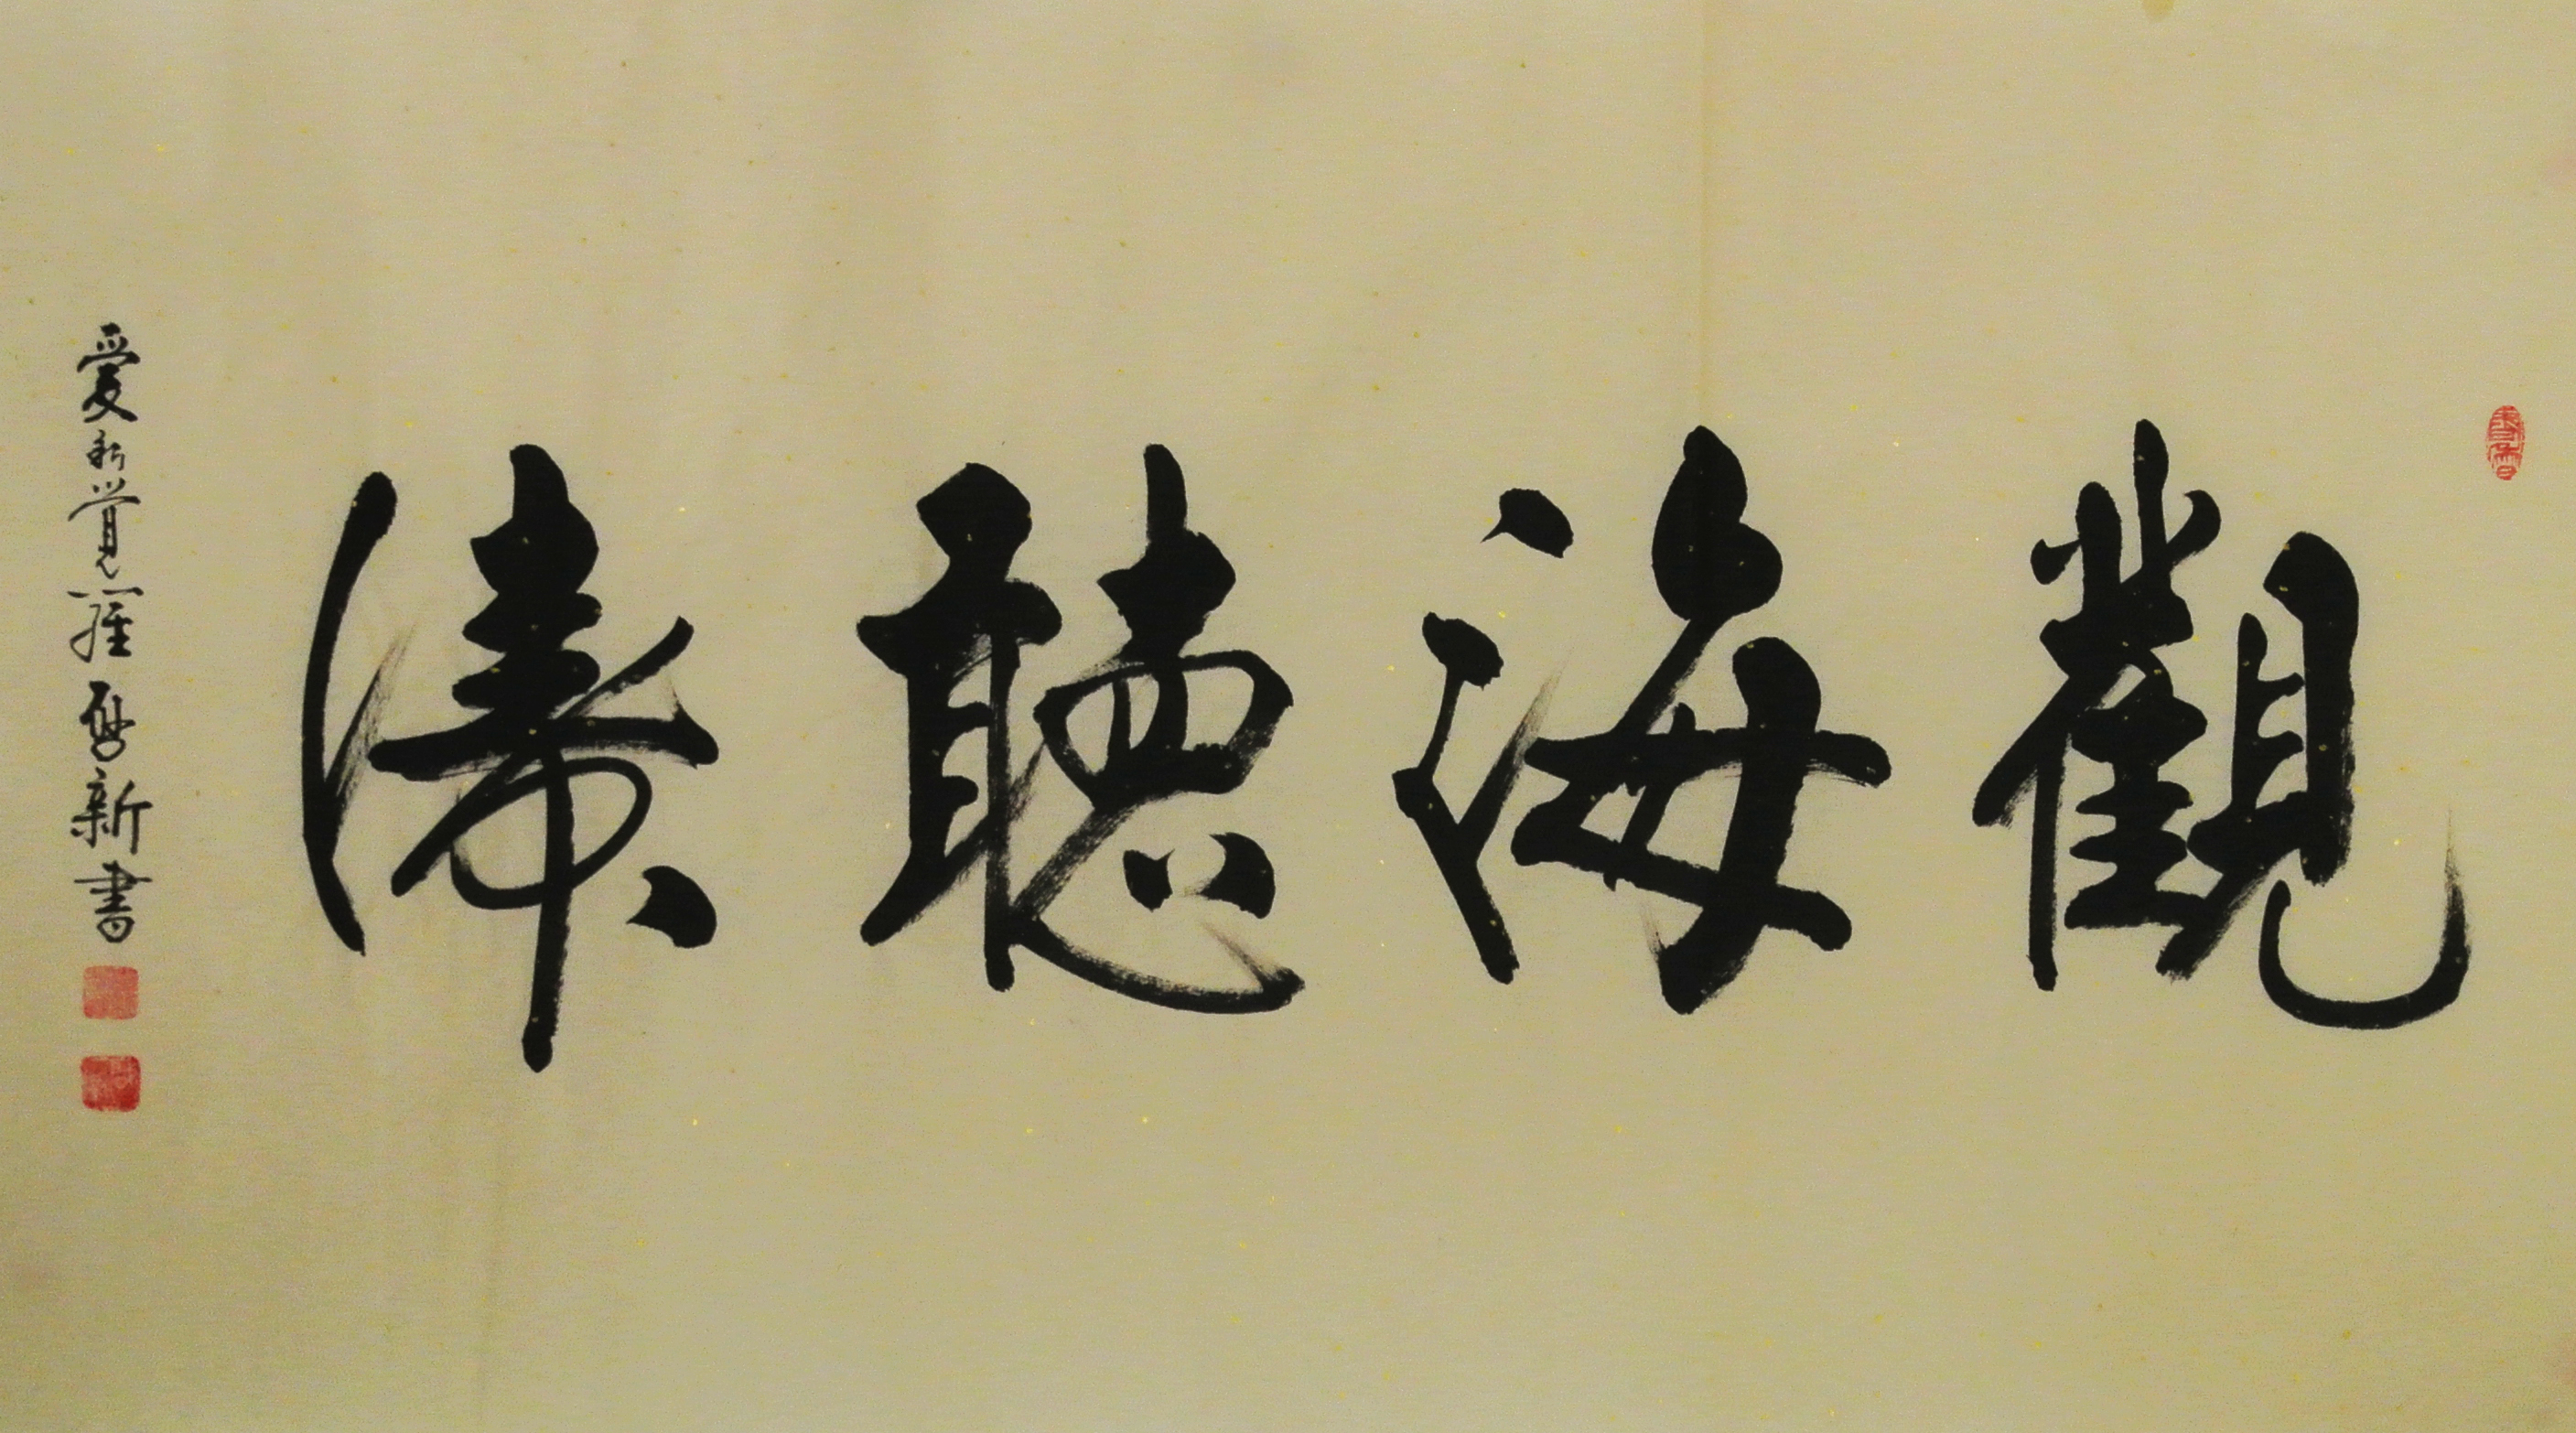 觀海聽濤
愛新覺羅啓新書